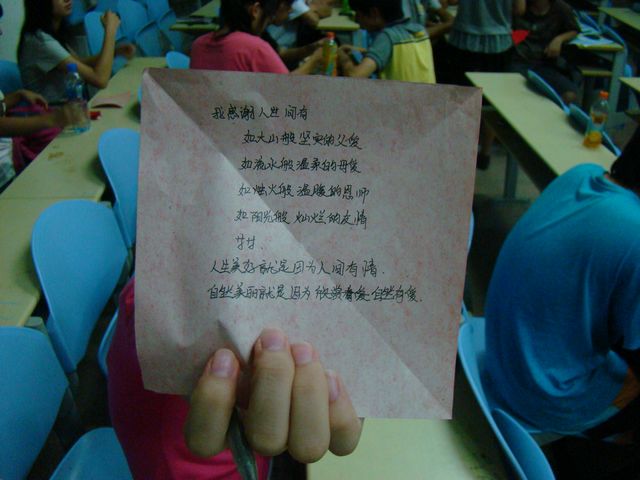 我感谢人生间有
如大山般坚实的父爱
如流水般温柔的母爱
如烛火般温暖的恩师
如阳光般灿烂的友情
甘甘.
人生美好就是因为人间有情.
自然美丽就是因为欣赏着爱自然有爱.